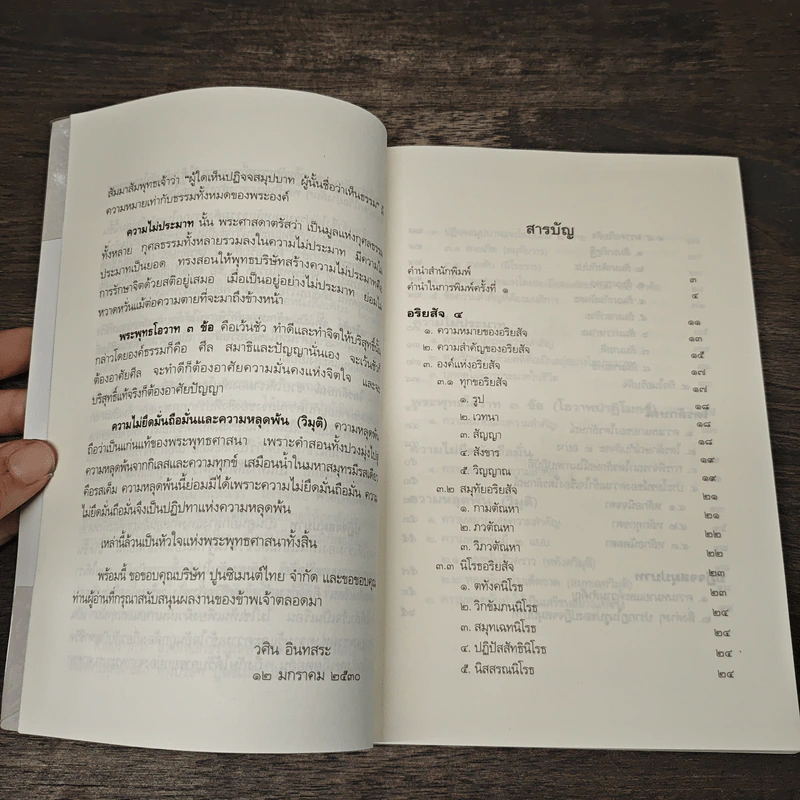 สัมมาสัมพุทธเจ้าว่า "ผู้ใดเห็นปฏิจจสมุปบาท ผู้นั้นชื่อว่าเห็นธรรม"
ความหมายเท่ากับธรรมทั้งหมดของพระองค์
ความไม่ประมาท นั้น พระศาสดาตรัสว่า เป็นมูลแห่งกุศลธรรม
ทั้งหลาย กุศลธรรมทั้งหลายรวมลงในความไม่ประมาท มีความไม่
ประมาทเป็นยอด ทรงสอนให้พุทธบริษัทสร้างความไม่ประมาทด้วย
การรักษาจิตด้วยสติอยู่เสมอ เมื่อเป็นอยู่อย่างไม่ประมาท ย่อมไม่
หวาดหวั่นแม้ต่อความตายที่จะมาถึงข้างหน้า
พระพุทธโอวาท ๓ ข้อ คือเว้นชั่ว ทำดีและทำจิตให้บริสุทธิ์นั้น
กล่าวโดยองค์ธรรมก็คือ ศีล สมาธิและปัญญานั่นเอง จะเว้นชั่ว
ต้องอาศัยศีล จะทำดีก็ต้องอาศัยความมั่นคงแห่งจิตใจ และจะ
บริสุทธิ์แท้จริงก็ต้องอาศัยปัญญา
ความไม่ยึดมั่นถือมั่นและความหลุดพ้น (วิมุติ) ความหลุดพ้น
ถือว่าเป็นแก่นแท้ของพระพุทธศาสนา เพราะคำสอนทั้งปวงมุ่งไปสู่
ความหลุดพ้นจากกิเลสและความทุกข์ เสมือนน้ำในมหาสมุทรมีรสเดียว
คือรสเค็ม ความหลุดพ้นนี้ย่อมมีได้เพราะความไม่ยึดมั่นถือมั่น ความ
ไม่ยึดมั่นถือมั่นจึงเป็นปฏิปทาแห่งความหลุดพ้น
เหล่านี้ล้วนเป็นหัวใจแห่งพระพุทธศาสนาทั้งสิ้น
พร้อมนี้ ขอขอบคุณบริษัท ปูนซิเมนต์ไทย จำกัด และขอขอบคุณ
ท่านผู้อ่านที่กรุณาสนับสนุนผลงานของข้าพเจ้าตลอดมา
วศิน อินทสระ
๑๒ มกราคม ๒๕๓๐
สารบัญ
คำนำสำนักพิมพ์ ๓
คำนำในการพิมพ์ครั้งที่ ๑ ๔
อริยสัจ ๔ ๑๑
๑. ความหมายของอริยสัจ ๑๓
๒. ความสำคัญของอริยสัจ ๑๕
๓. องค์แห่งอริยสัจ ๑๗
๓.๑ ทุกขอริยสัจ ๑๗
๑. รูป ๑๘
๒. เวทนา ๑๘
๓. สัญญา ๑๘
๔. สังขาร ๑๙
๕. วิญญาณ ๑๙
๓.๒ สมุทัยอริยสัจ ๒๑
๑. กามตัณหา ๒๑
๒. ภวตัณหา ๒๒
๓. วิภวตัณหา ๒๒
๓.๓ นิโรธอริยสัจ ๒๓
๑. ตทังคนิโรธ ๒๓
๒. วิกขัมภนนิโรธ ๒๔
๓. สมุทเฉทนิโรธ ๒๔
๔. ปฏิปัสสัทธินิโรธ ๒๔
๕. นิสสรณนิโรธ ๒๔